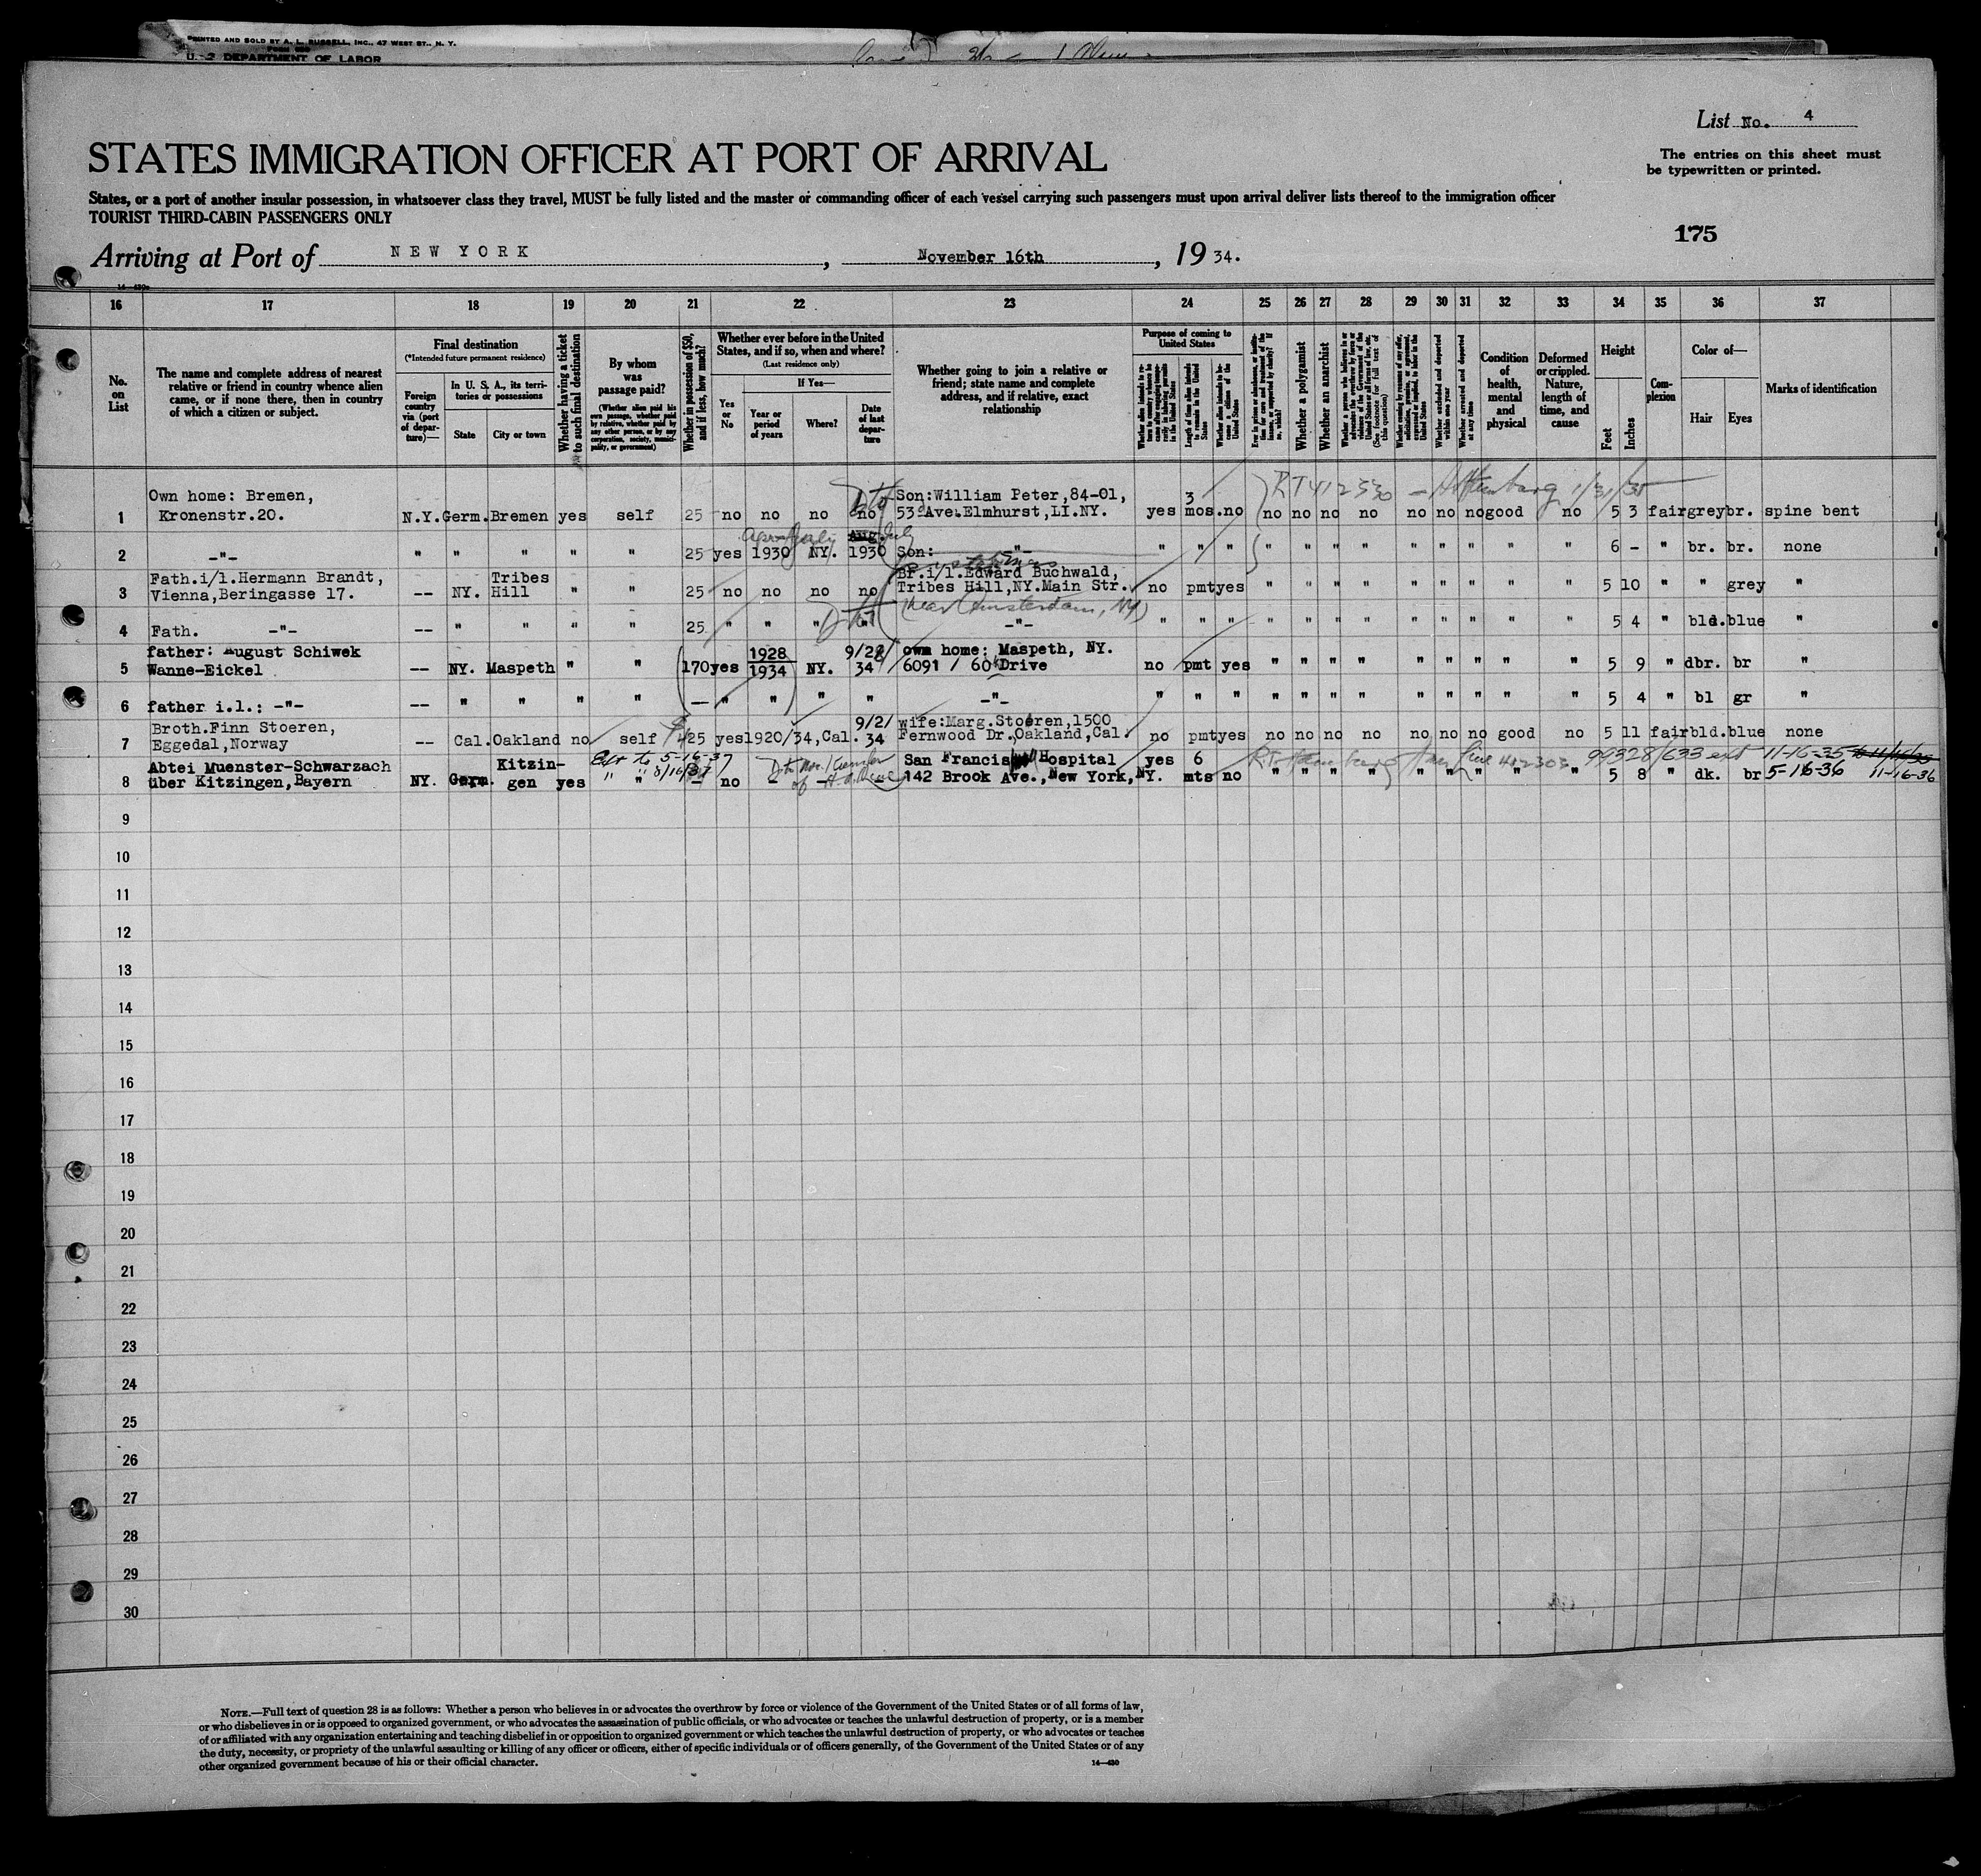 PRINTED AND SOLD BY A. L. RUSSELL, INC., 47 WEST ST., N. Y.
U. S. DEPARTMENT OF LABOR
List No. 4
STATES IMMIGRATION OFFICER AT PORT OF ARRIVAL
The entries on this sheet must
be typewritten or printed.
States, or a port of another insular possession, in whatsoever class they travel, MUST be fully listed and the master or commanding officer of each vessel carrying such passengers must upon arrival deliver lists thereof to the immigration officer
TOURIST THIRD-CABIN PASSENGERS ONLY
175
Arriving at Port of NEW YORK, November 16th, 19 34.
16 17 18 19 20 21 22 23 24 25 26 27 28 29 30 31 32 33 34 35 36 37
No. on List
The name and complete address of nearest
relative or friend in country whence alien
came, or if none there, then in country
of which a citizen or subject.
Final destination
(*Intended future permanent residence)
Foreign country via (port of departure)—
In U. S. A., its territories or possessions
State
City or town
Whether having a ticket to such final destination
By whom was passage paid?
(Whether alien paid his own passage, whether paid by relative, whether paid by any other person, or by any corporation, society, municipality, or government)
Whether in possession of $50, and if less, how much?
Whether ever before in the United
States, and if so, when and where?
(Last residence only)
If Yes—
Yes or No
Year or period of years
Where?
Date of last departure
Whether going to join a relative or
friend; state name and complete
address, and if relative, exact
relationship
Purpose of coming to United States
Length of time alien intends to remain in the United States
Whether alien intends to become a citizen of the United States
Whether a polygamist
Whether an anarchist
Whether excluded and deported within one year
Whether arrested and deported at any time
Condition of health, mental and physical
Deformed or crippled. Nature, length of time, and cause
Height
Feet
Inches
Complexion
Color of—
Hair
Eyes
Marks of identification
RT 412530 1/31/35
Own home: Bremen, Son:William Peter,84-01, 3
1 Kronenstr.20. N.Y.Germ.Bremen yes self 25 no no no no 53d Ave.Elmhurst,LI.NY. yes mos.no no no no no no no no good no 5 3 fair grey br. spine bent
Aug. July
2 -"- " " " " " 25 yes 1930 NY. 1930 Son: -"- " " " " " " " " " " " " 6 - " br. br. none
Fath.i/l.Hermann Brandt, Tribes Br.i/l.Edward Buchwald,
3 Vienna,Beringasse 17. -- NY. Hill " " 25 no no no no Tribes Hill,NY.Main Str. no pmt yes " " " " " " " " " 5 10 " " grey "
(near Amsterdam, NY)
4 Fath. -"- -- " " " " 25 " " " " -"- " " " " " " " " " " " " 5 4 " bld. blue "
father: August Schiwek 1928 9/28/ own home: Maspeth, NY.
5 Wanne-Eickel -- NY. Maspeth " " 170 yes 1934 NY. 34 6091 / 60 Drive no pmt yes " " " " " " " " " 5 9 " dbr. br "
6 father i.l.: -"- -- " " " " — " " " " -"- " " " " " " " " " " " " 5 4 " bl gr "
Broth.Finn Stoeren, 9/2/ wife:Marg.Stoeren,1500
7 Eggedal,Norway -- Cal.Oakland no self 425 yes 1920/34,Cal. 34 Fernwood Dr.,Oakland,Cal. no pmt yes no no no no no no no good no 5 11 fair bld.blue none
Abtei Muenster-Schwarzach Kitzin- Ext to 5-16-37 San Francis Hospital yes 6 99328/633 ext 11-16-35
8 über Kitzingen,Bayern NY. Germ. gen yes " " 8/16/37 — no — 142 Brook Ave.,New York,NY. mts no " " " " " " " " " 5 8 " dk. br 5-16-36 11-16-36
9
10
11
12
13
14
15
16
17
18
19
20
21
22
23
24
25
26
27
28
29
30
NOTE.—Full text of question 28 is as follows: Whether a person who believes in or advocates the overthrow by force or violence of the Government of the United States or of all forms of law,
or who disbelieves in or is opposed to organized government, or who advocates the assassination of public officials, or who advocates or teaches the unlawful destruction of property, or is a member
of or affiliated with any organization entertaining and teaching disbelief in or opposition to organized government or which teaches the unlawful destruction of property, or who advocates or teaches
the duty, necessity, or propriety of the unlawful assaulting or killing of any officer or officers, either of specific individuals or of officers generally, of the Government of the United States or of any
other organized government because of his or their official character.
14—430